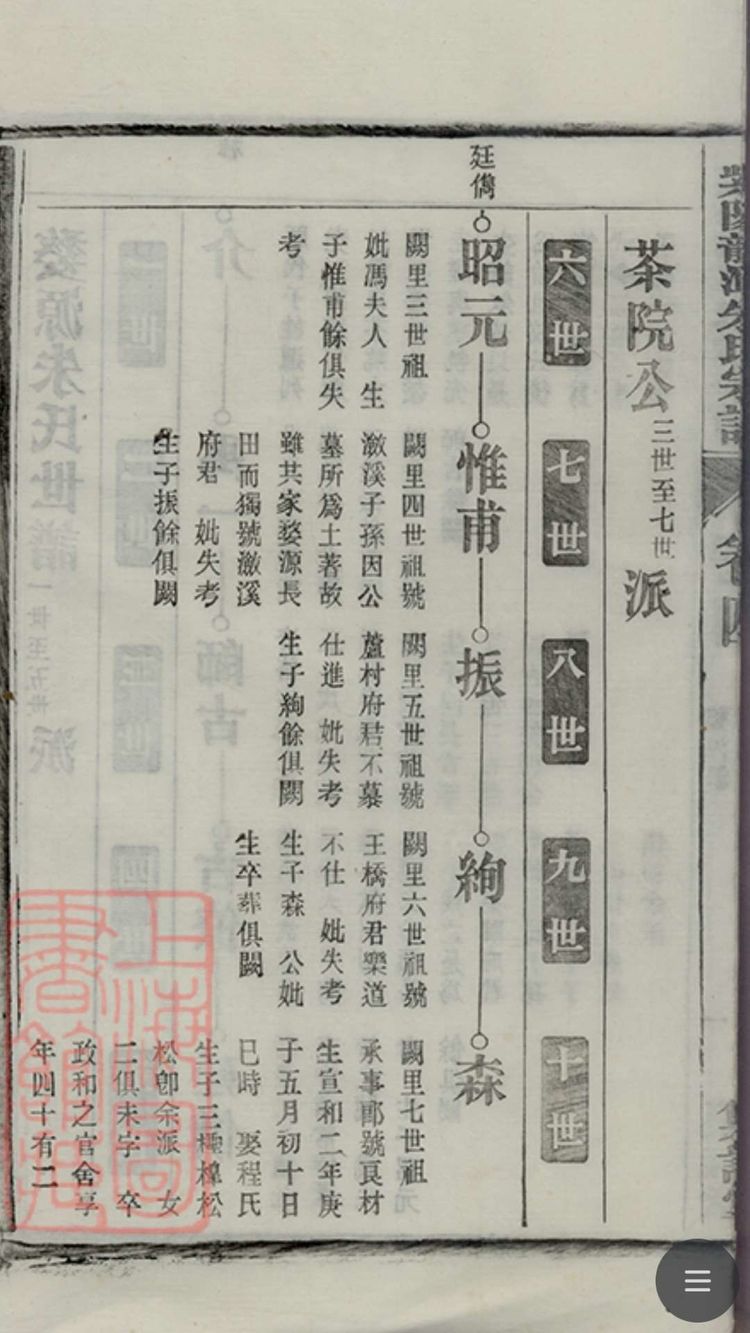 茶院公三世至七世派
六世
七世
八世
九世
十世
廷儁
昭元
闕里三世祖
妣馮夫人 生
子惟甫餘俱失
考
惟甫
闕里四世祖號
潋溪子孫因公
墓所爲土著故
雖其家婺源長
田而獨號潋溪
府君 妣失考
生子振餘俱闕
振
闕里五世祖號
蘆村府君不慕
仕進 妣失考
生子絢餘俱闕
絢
闕里六世祖號
王橋府君樂道
不仕 妣失考
生子森 公妣
生卒葬俱闕
森
闕里七世祖
承事郎號良材
生宣和二年庚
子五月初十日
巳時 娶程氏
生子三 松
松卽余派 女
二俱未字 卒
政和之官舍享
年四十有二
卷四
上海圖書館藏